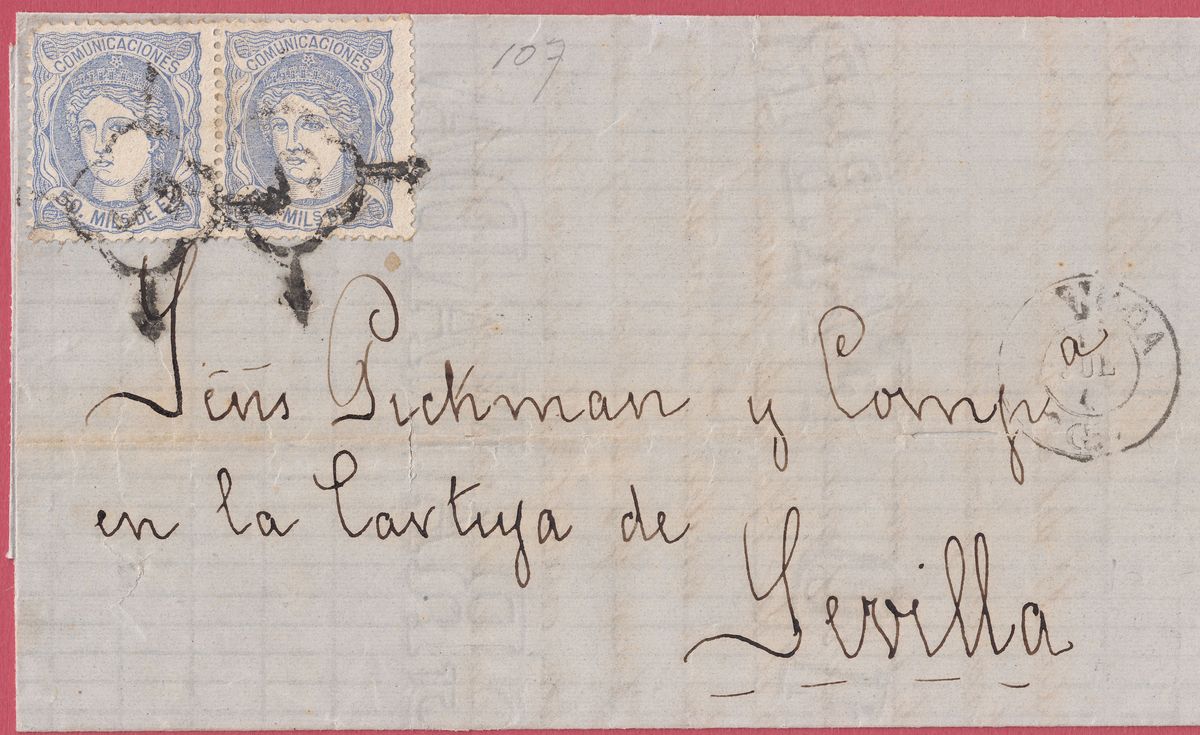 COMUNICACIONES COMUNICACIONES
50. MILS DE E MILS DE
107
Señs Pickman y Compa
en la Cartuja de
Sevilla
JUL